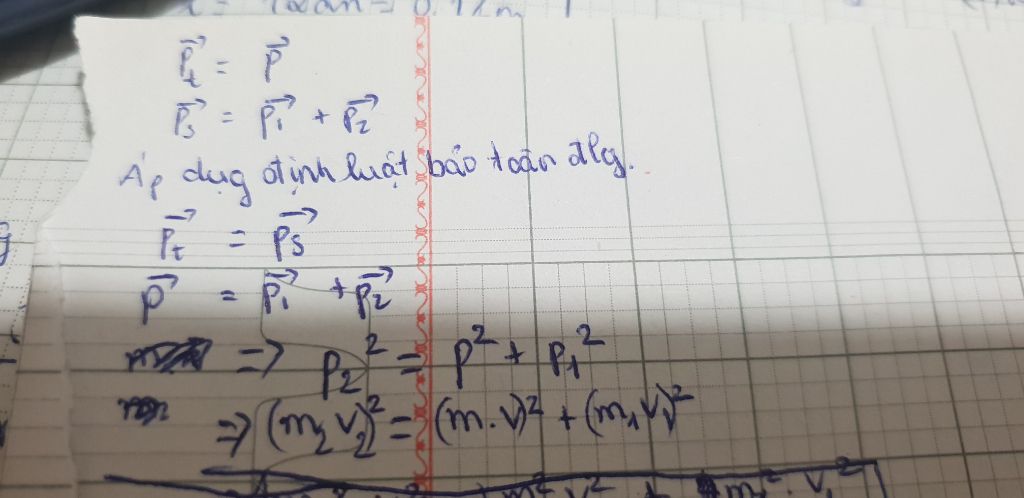 P⃗t = P⃗
P⃗s = P⃗1 + P⃗2
Áp dụg định luật bảo toàn đlg.
P⃗t = P⃗s
P⃗ = P⃗1 + P⃗2
=> P2² = P² + P1²
=> (m2 V2)² = (m.V)² + (m1V1)²